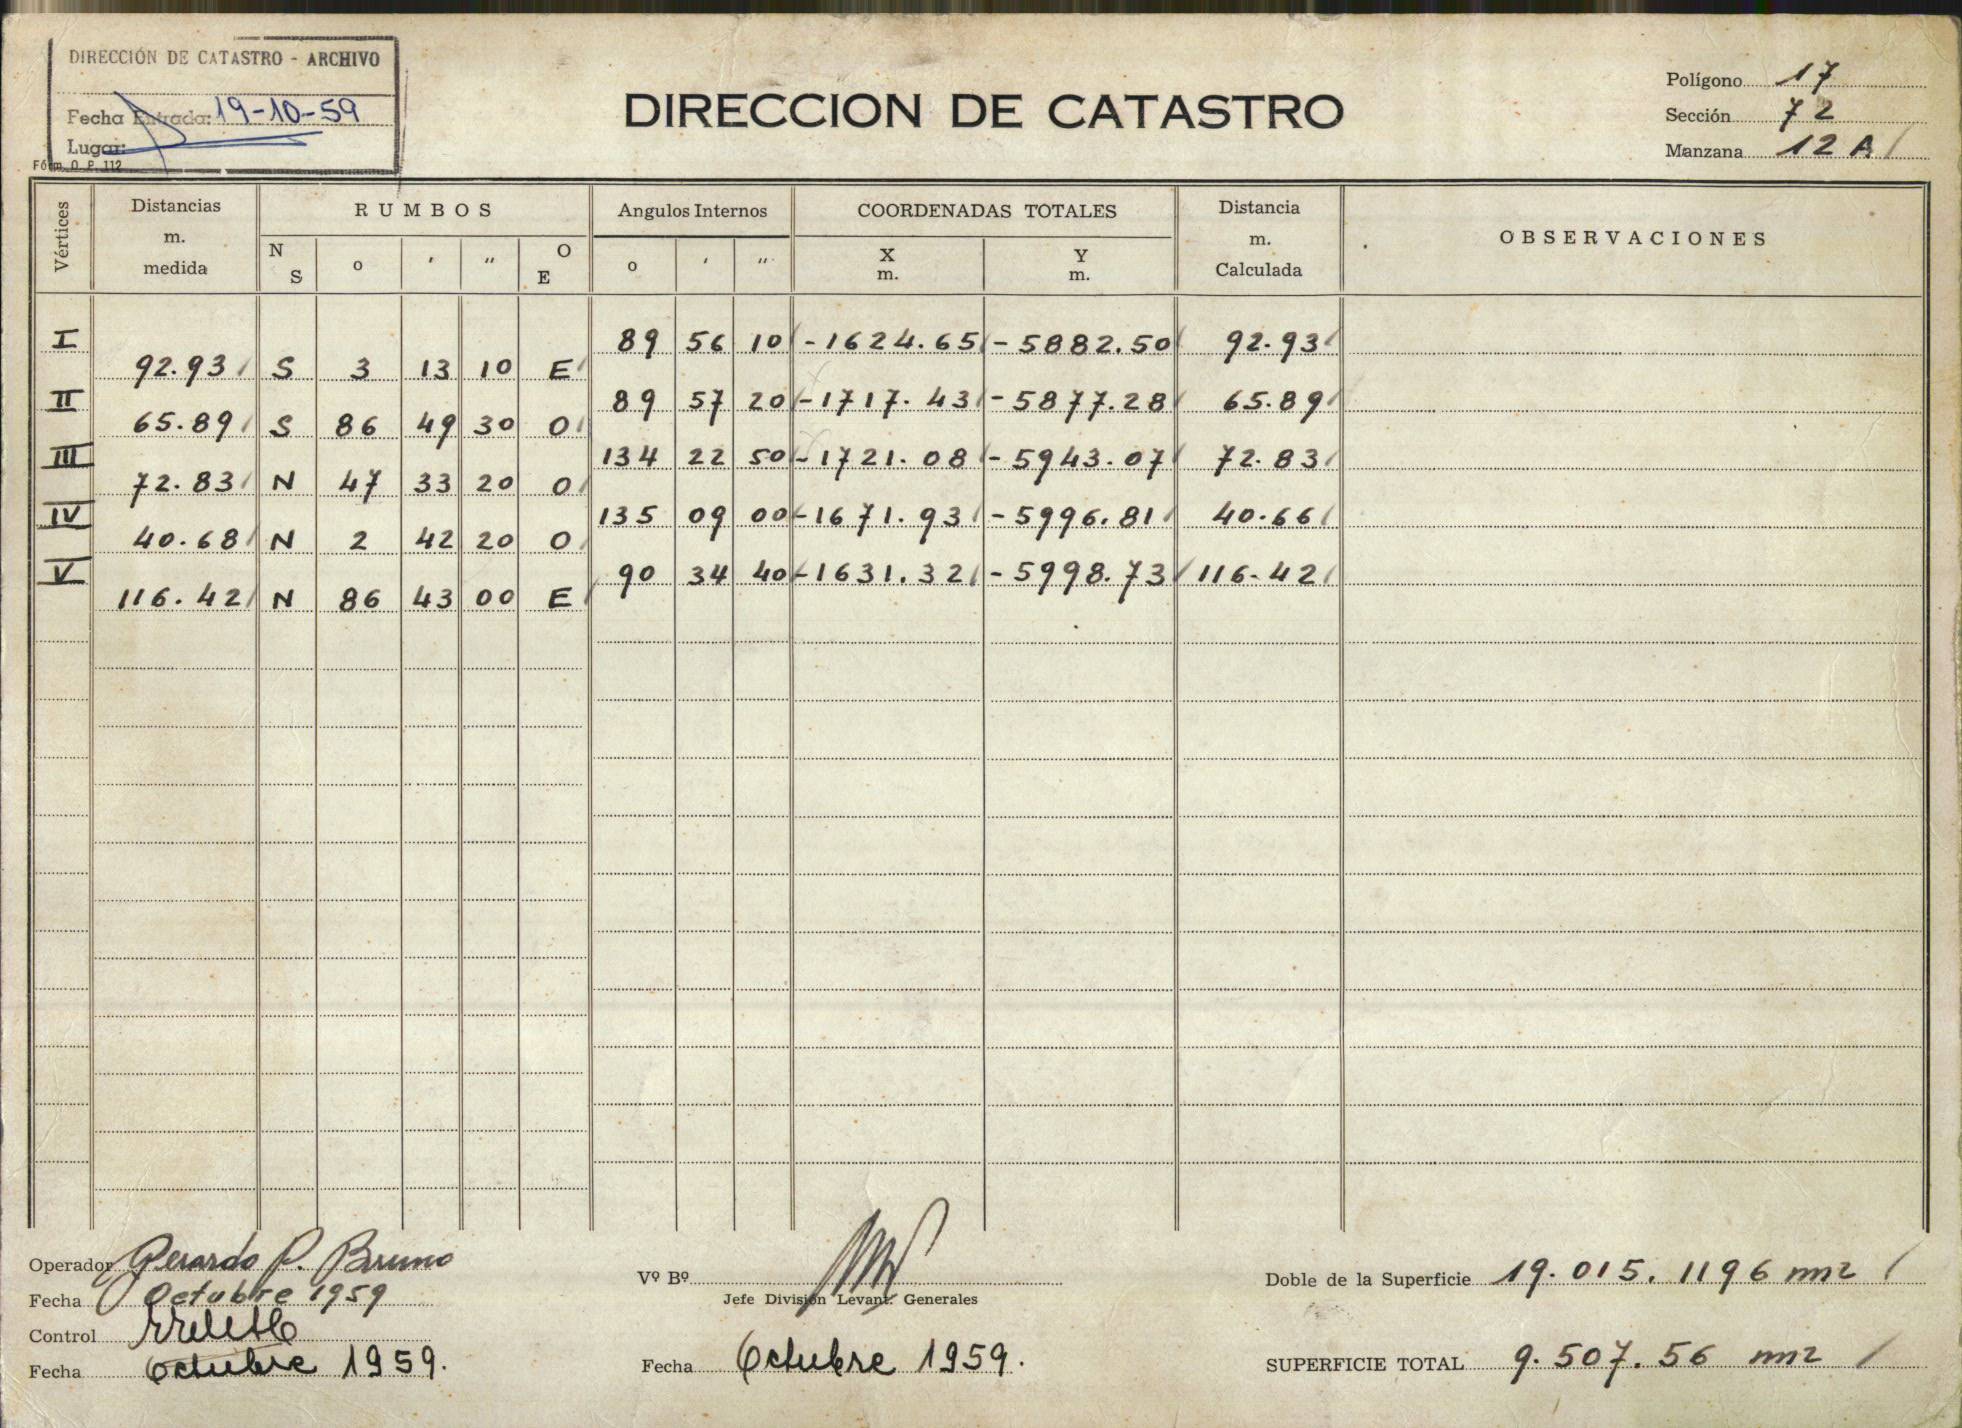 DIRECCIÓN DE CATASTRO - ARCHIVO
Fecha Entrada: 19-10-59
Lugar:
Fórm. O. P. 112
DIRECCION DE CATASTRO
Polígono 17
Sección 72
Manzana 12 A
Vértices Distancias m. medida RUMBOS Angulos Internos COORDENADAS TOTALES Distancia m. Calculada OBSERVACIONES
N S o ′ ″ O E o ′ ″ X m. Y m.
I 89 56 10 -1624.65 -5882.50 92.93
92.93 S 3 13 10 E
II 89 57 20 -1717.43 -5877.28 65.89
65.89 S 86 49 30 O
III 134 22 50 -1721.08 -5943.07 72.83
72.83 N 47 33 20 O
IV 135 09 00 -1671.93 -5996.81 40.66
40.68 N 2 42 20 O
V 90 34 40 -1631.32 -5998.73 116.42
116.42 N 86 43 00 E
Operador Gerardo P. Bruno
Fecha Octubre 1959
Control
Fecha Octubre 1959.
Vº Bº
Jefe División Levant. Generales
Fecha Octubre 1959.
Doble de la Superficie 19.015.1196 m2
SUPERFICIE TOTAL 9.507.56 m2